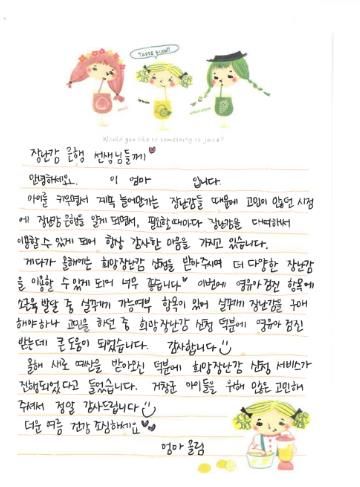 Taste good!
Would you like to something to juice?
장난감 은행 선생님들께♥
안녕하세요. 이 엄마 입니다.
아이를 키우면서 계속 늘어만가는 장난감들 때문에 고민이 많던 시점
에 장난감 은행을 알게 되면서, 필요할 때마다 장난감을 대여해서
이용할 수 있게 되어 항상 감사한 마음을 가지고 있습니다.
게다가 올해에는 희망장난감 신청을 받아주시며 더 다양한 장난감
을 이용할 수 있게 되어 너무 좋습니다! 이번에 영유아검진 항목에
소근육 발달 중 실꿰기 가능여부 항목이 있어 실꿰기 장난감을 구매
해야하나 고민을 하던 중 희망장난감 신청 덕분에 영유아 검진
받는데 큰 도움이 되었습니다. 감사합니다
올해 새로 예산을 받아오신 덕분에 희망장난감 신청 서비스가
진행되었다고 들었습니다. 거창군 아이들을 위해 오늘도 고민해
주셔서 정말 감사드립니다
더운 여름 건강 조심하세요♥♥
엄마 올림